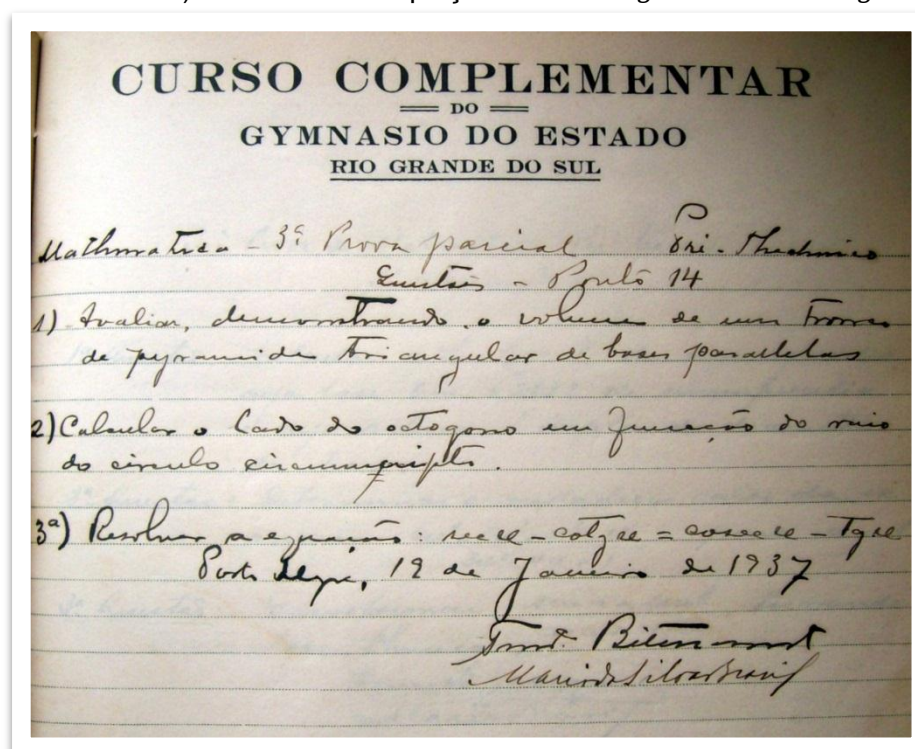 CURSO COMPLEMENTAR
DO
GYMNASIO DO ESTADO
RIO GRANDE DO SUL
Mathmatica - 3ª Prova parcial Pri-Thechnico
- Ponto 14
1) Avaliar, demonstrando, o volume de um tronco
de pyramide triangular de bases parallelas
2) Calcular o lado do octogono em funcção do raio
do circulo circumscripto.
3ª) Resolver a equação: sec x - cotg x = cosec x - Tg x
Porto Alegre, 19 de Janeiro de 1937
Bitencourt
Mario da Silva Brasil